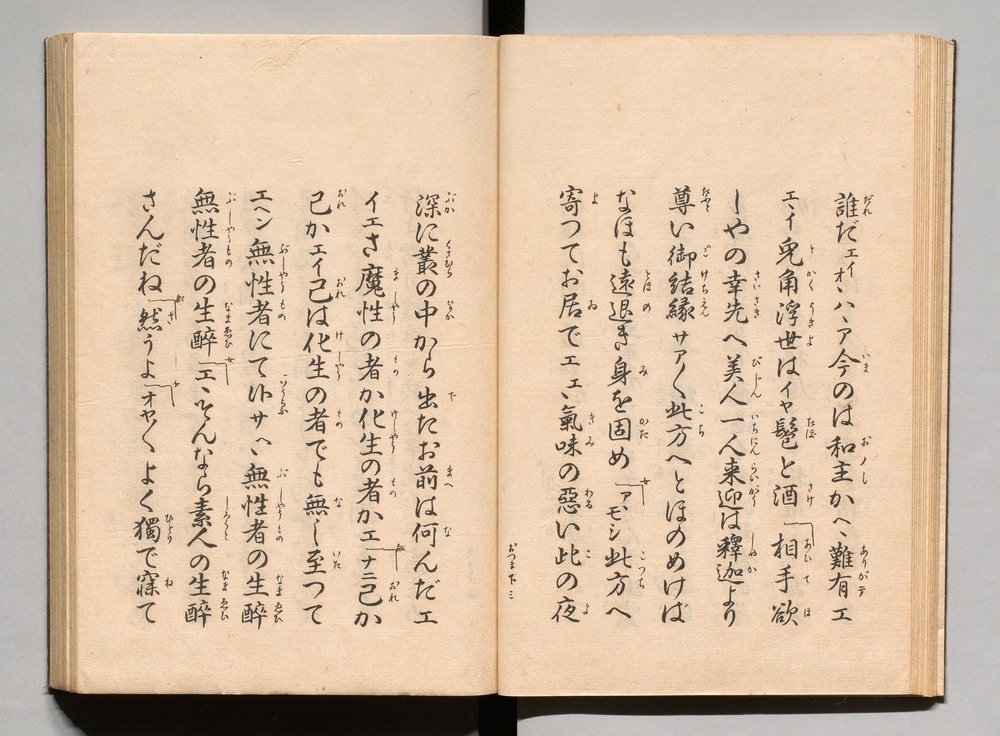 誰だエイオヽハヽア今のは和主かへ難有エ
エヽイ兎角浮世はイヤ髱と酒「相手欲
しやの幸先へ美人一人来迎は釋迦より
尊い御結縁サア〱此方へとほのめけば
なほも遠退き身を固め「アヽモシ此方へ
寄つてお居でエヽ氣味の惡い此の夜
深に叢の中から出たお前は何んだエ
イエさ魔性の者か化生の者かエ「ナニ己か
己かエイ己は化生の者でも無し至つて
エヘン無性者にて候サヘヽ無性者の生醉
無性者の生醉「エヽそんなら素人の生醉
さんだね「然うよ「オヤ〱よく獨で寐て
おつま下 ミ